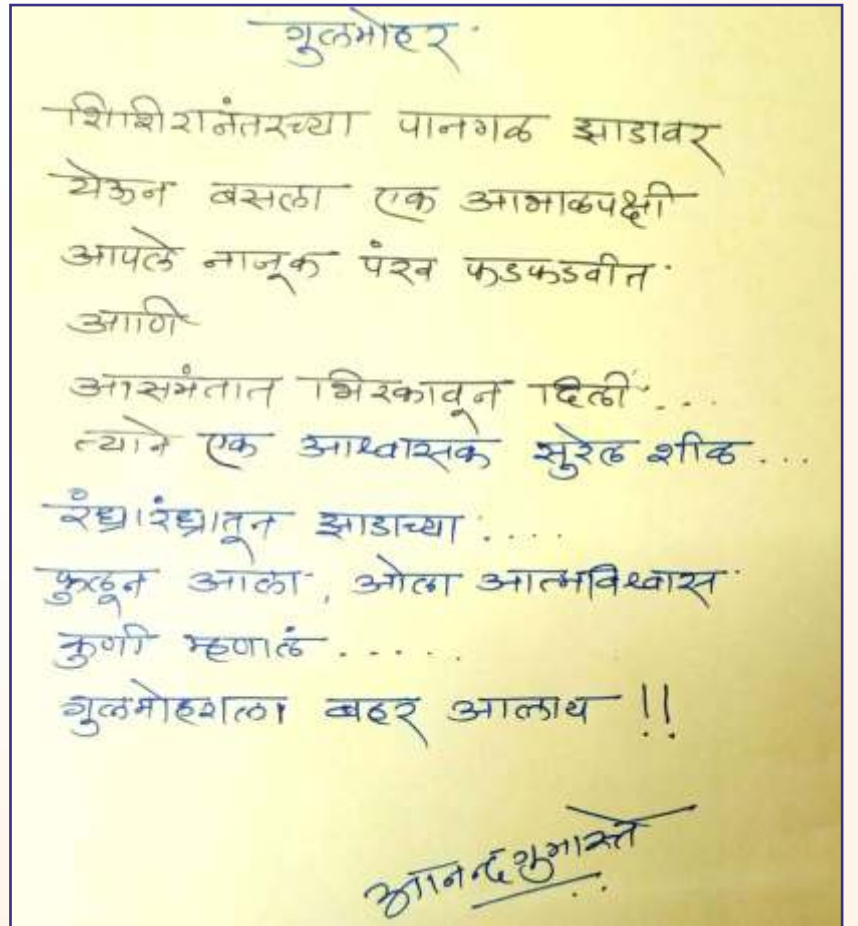 गुलमोहर.
शिशिरानंतरच्या पानगळ झाडावर
येऊन बसला एक आभाळपक्षी
आपले नाजूक पंख फडफडवीत.
आणि
आसमंतात भिरकावून दिली...
त्याने एक आश्वासक सुरेल शीळ...
रंध्रारंध्रातून झाडाच्या....
फुलून आला, ओला आत्मविश्वास.
कुणी म्हणालं.....
गुलमोहराला बहर आलाय !!
आनन्द गुमास्ते